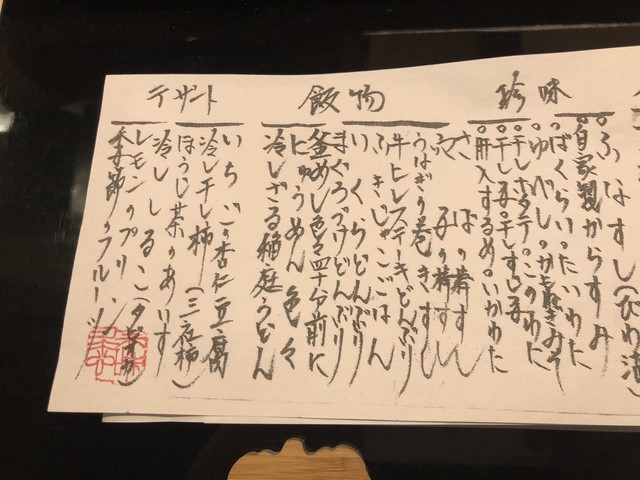 珍味
ふなすし(びわ湖)
自家製からすみ
ばくらい。たいわた
ゆべし。かき
干しホタテ。このわた
干し子。干しすじ子
肝入するめ。いかわた
飯物
さばの棒すし
穴子の棒すし
うなぎの巻きすし
牛ヒレステーキどんぶり
ふきじゃこごはん
いくらどんぶり
まぐろづけどんぶり
釜めし色々四十分前に
にゅうめん色々
冷しざる稲庭うどん
デザート
いちごの杏仁豆腐
冷し干し柿(三社柿)
ほうじ茶のあいす
冷ししるこ(タピオカ)
レモンのプリン
季節のフルーツ